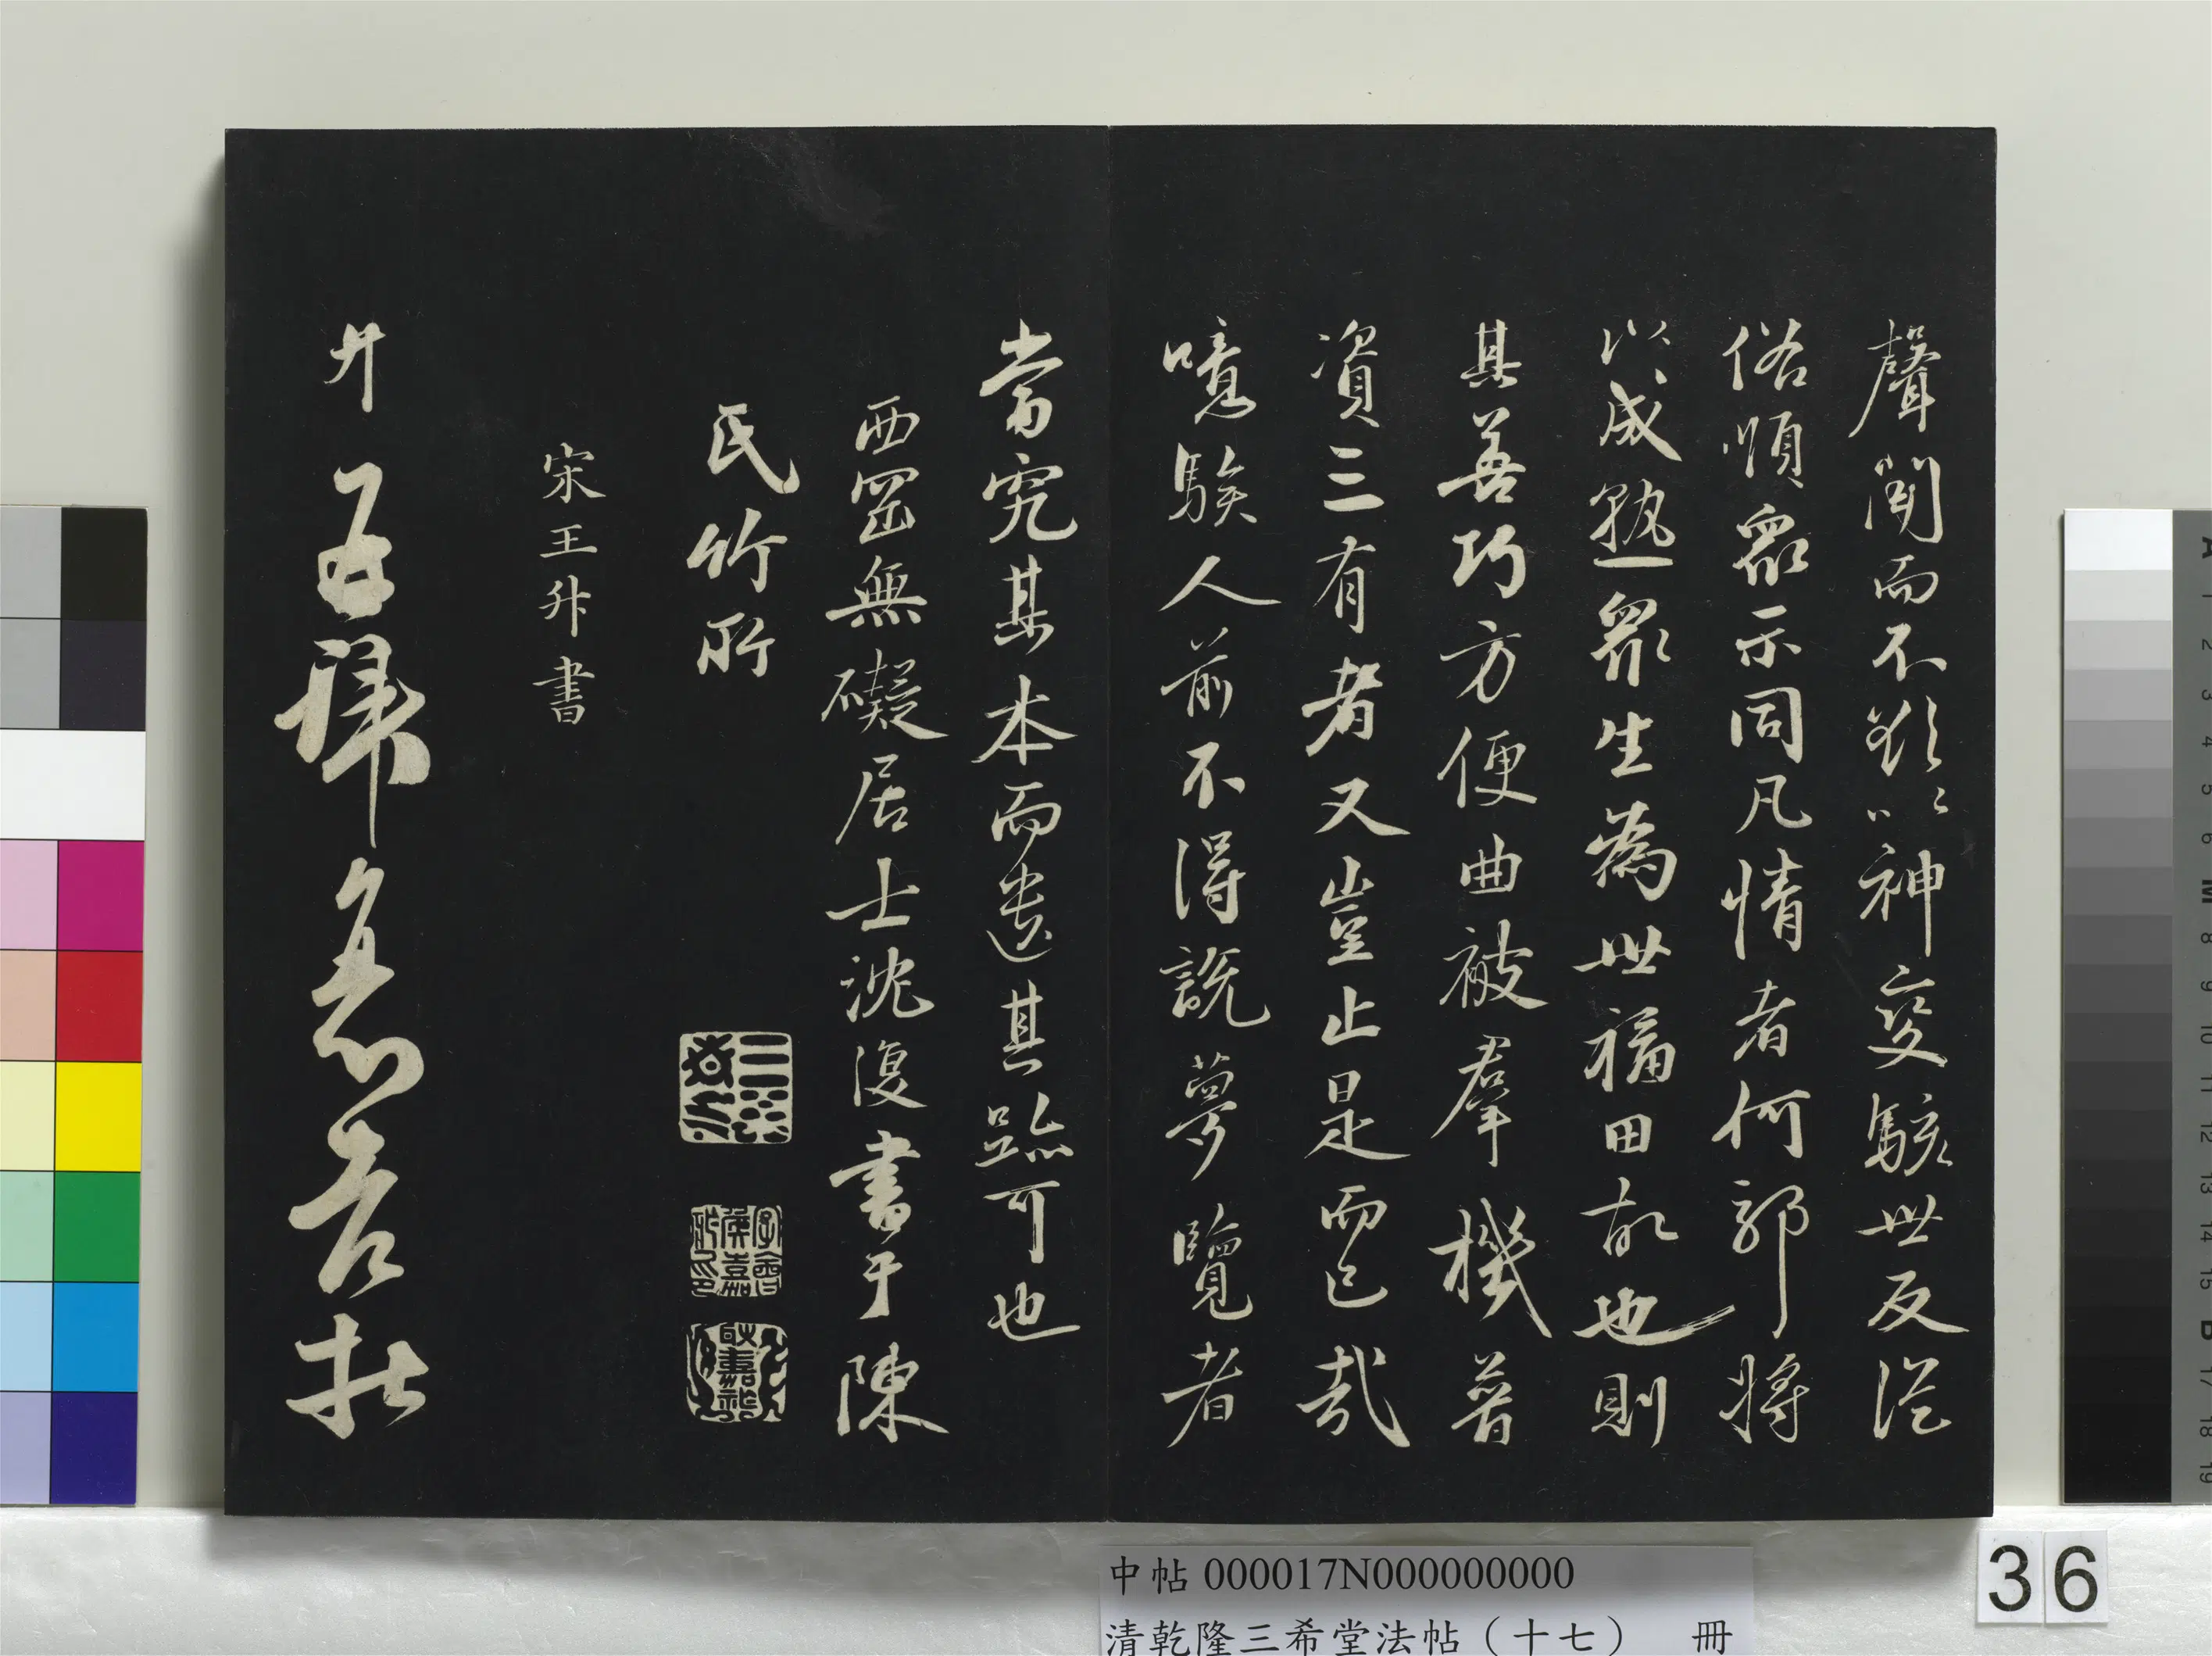 聲聞而不欲以神變駭世反從
俗順眾示同凡情者何郭將
以成熟眾生為世福田故也則
其善巧方便曲被羣機普
資三有者又豈止是而已哉
噫騃人前不得說夢覽者
當究其本而遺其跡可也
西罡無礙居士沈復書于陳
氏竹所
宋王升書
升
中帖 000017N000000000
清乾隆三希堂法帖（十七） 冊
36